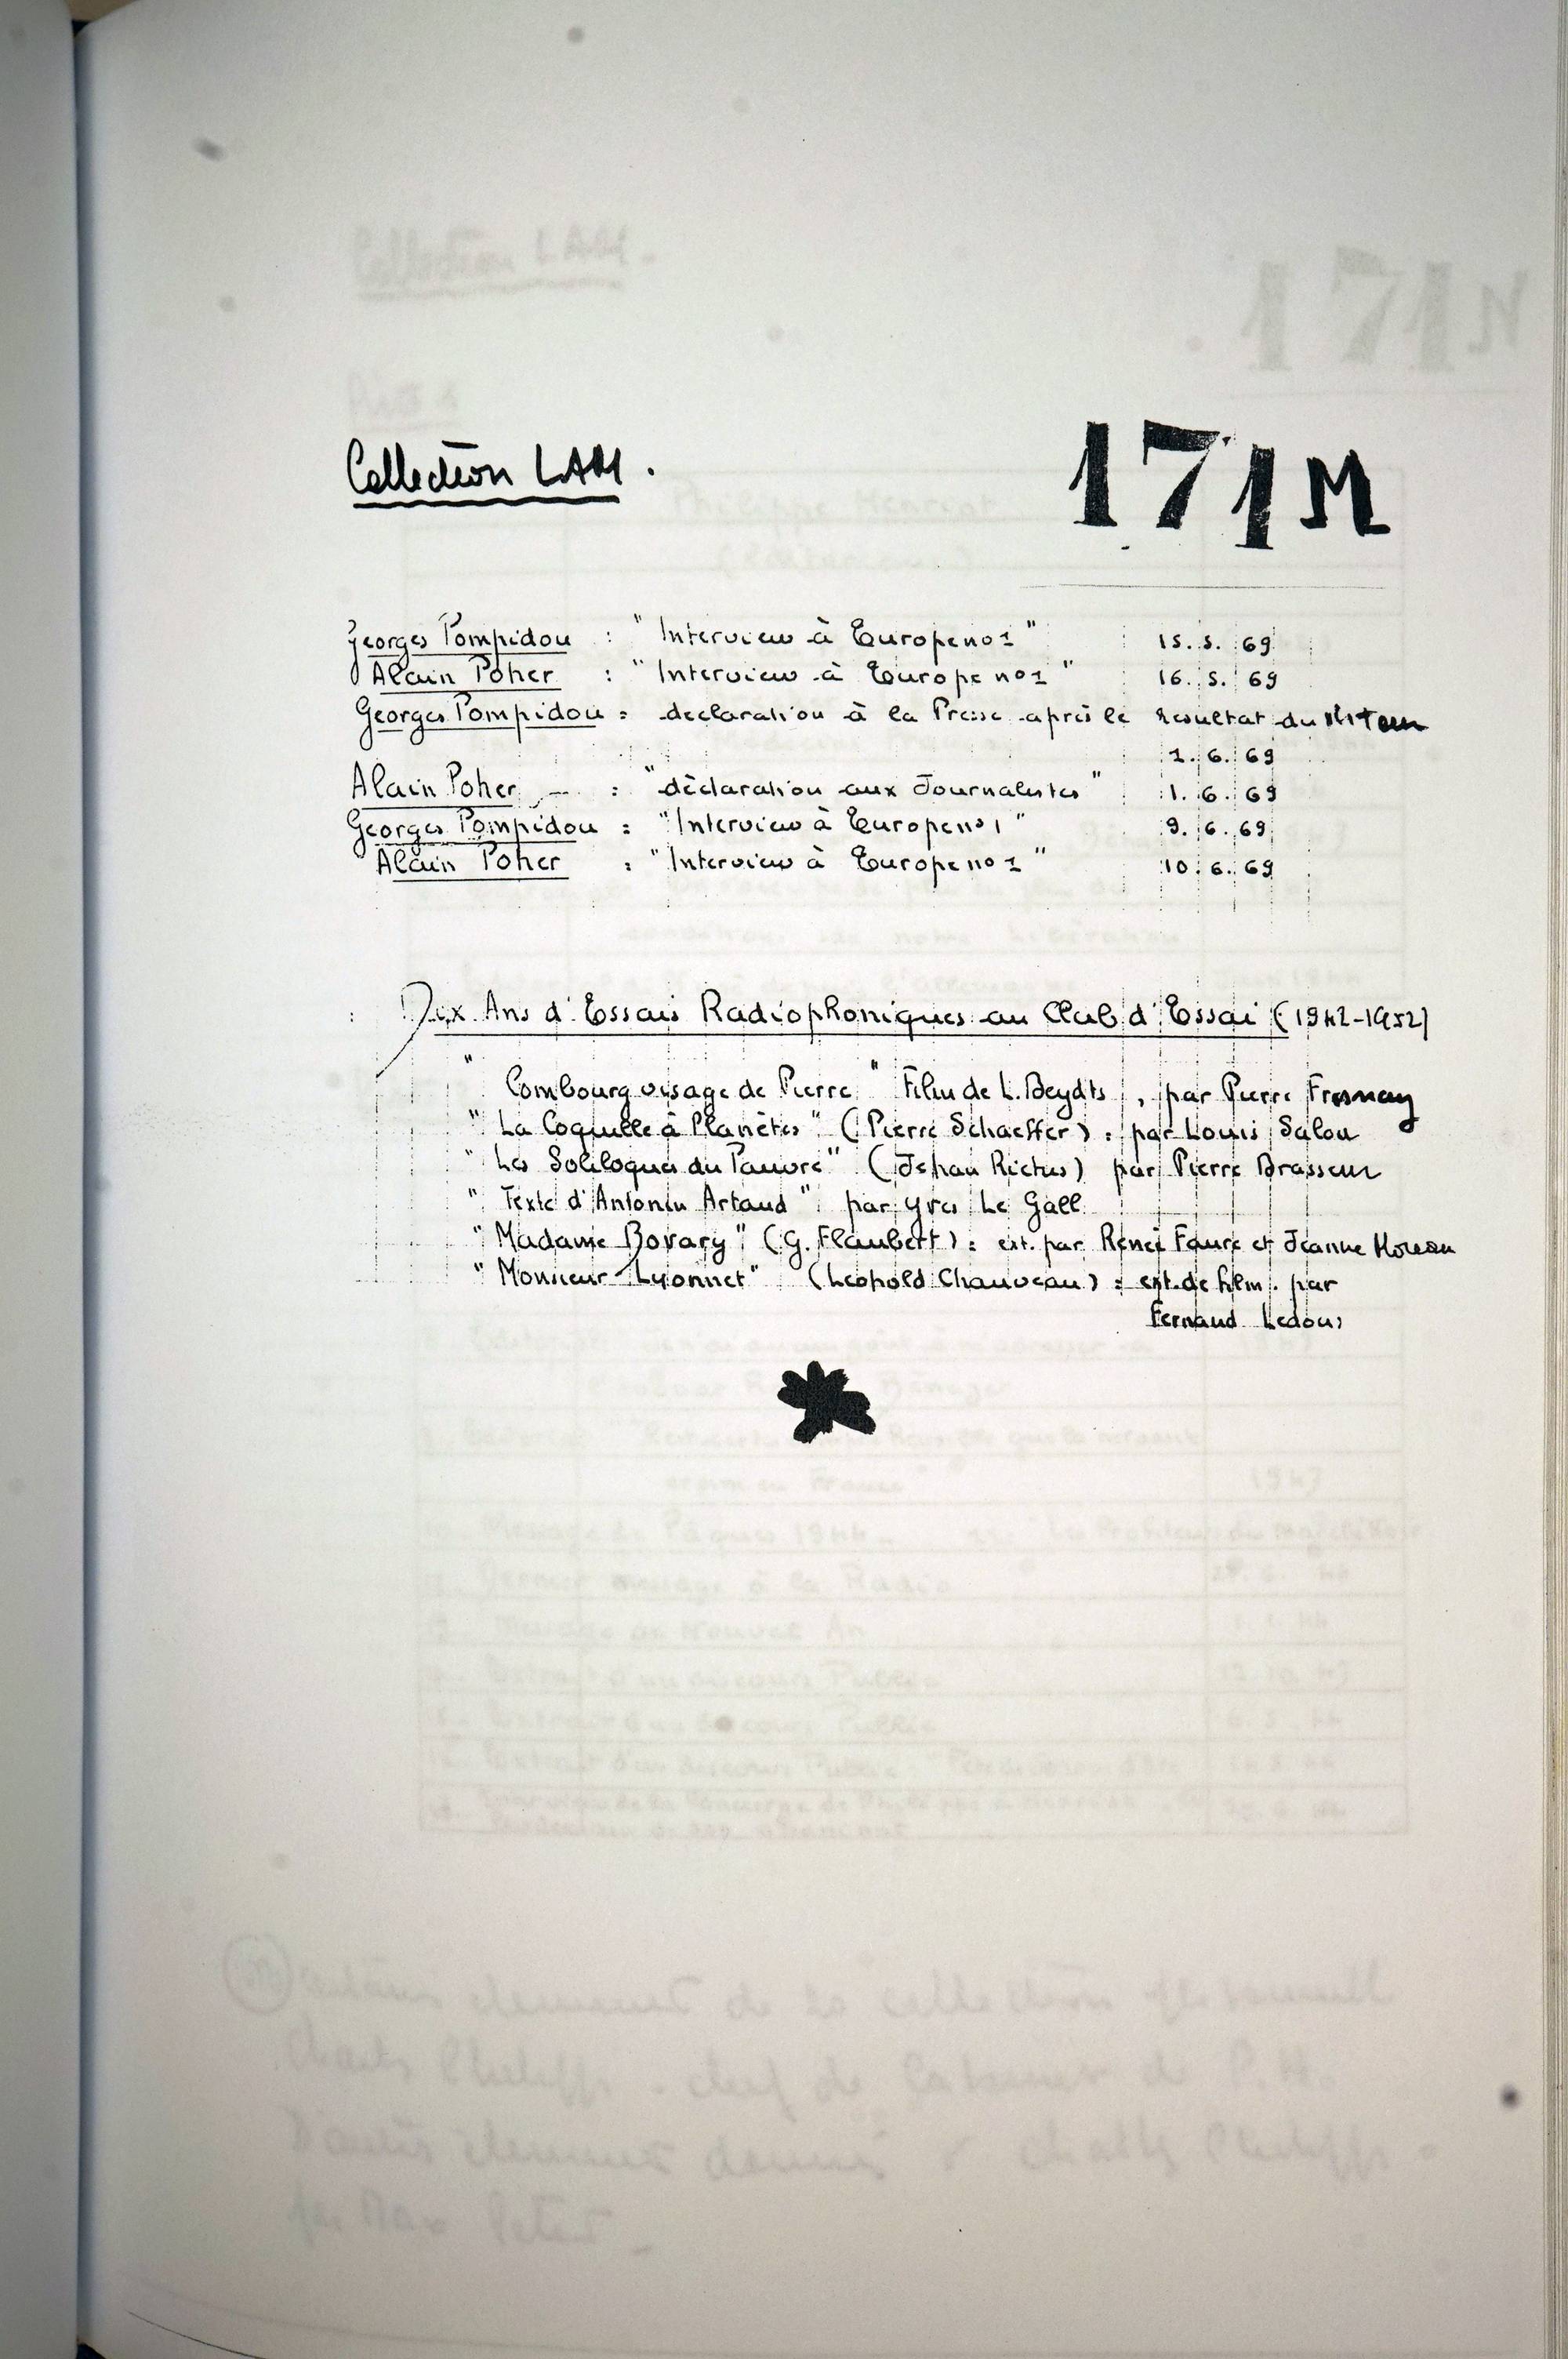 Collection LAM.
171M
Georges Pompidou : " Interview à Europe no1 " 15. 5. 69
Alain Poher : " Interview à Europe no1 " 16. 5. 69
Georges Pompidou : declaration à la Presse après le resultat du
1. 6. 69
Alain Poher : "déclaration aux Journalistes" 1. 6. 69
Georges Pompidou : "Interview à Europe no1" 9. 6. 69
Alain Poher : "Interview à Europe no1" 10. 6. 69
Dix Ans d'Essais Radiophoniques au Club d'Essai (1942-1952)
" Combourg visage de Pierre " Film de L. Beydts, par Pierre Fresnay
" La Coquille à Planètes " (Pierre Schaeffer) : par Louis Salou
" Les Soliloques du Pauvre" (Jehan Rictus) par Pierre Brasseur
" Texte d'Antonin Artaud " par Yves Le Gall
" Madame Bovary " (G. Flaubert) : ext. par Renée Faure et Jeanne Moreau
" Monsieur Lyonnet" (Leopold Chauveau) : ext. de film. par
Fernand Ledoux